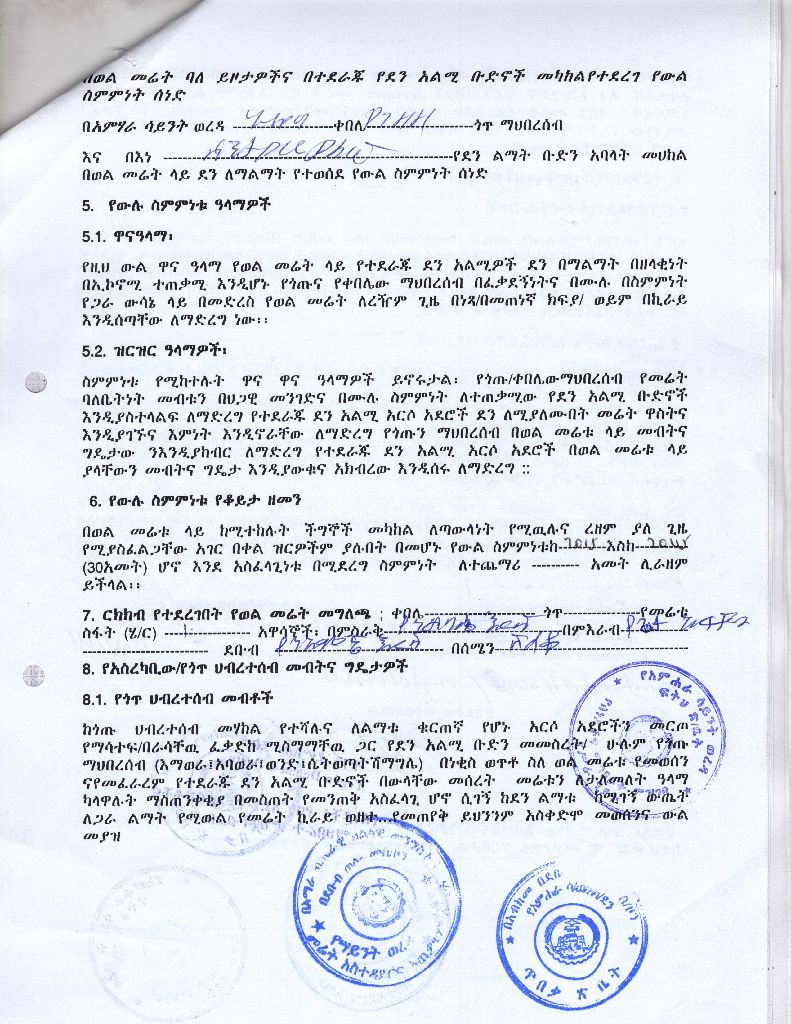 በወል መሬት ባለ ይዞታዎችና በተደራጁ የደን አልሚ ቡድኖች መካከልየተደረገ የውል
ስምምነት ሰነድ
በአምሃራ ሳይንት ወረዳ ---------------------ቀበሌ----------------------ጎጥ ማህበረሰብ
እና በእነ ------------------------------------------------------------የደን ልማት ቡድን አባላት መሀከል
በወል መሬት ላይ ደን ለማልማት የተወሰደ የውል ስምምነት ሰነድ
5. የውሉ ስምምነቱ ዓላማዎች
5.1. ዋናዓላማ፡
የዚህ ውል ዋና ዓላማ የወል መሬት ላይ የተደራጁ ደን አልሚዎች ደን በማልማት በዘላቂነት
በኢኮኖሚ ተጠቃሚ እንዲሆኑ የጎጡና የቀበሌው ማህበረሰብ በፈቃደኝነትና በሙሉ በስምምነት
የጋራ ውሳኔ ላይ በመድረስ የወል መሬት ለረዥም ጊዜ በነጻ/በመጠነኛ ክፍያ/ ወይም በኪራይ
እንዲሰጣቸው ለማድረግ ነው፡፡
5.2. ዝርዝር ዓላማዎች፡
ስምምነቱ የሚከተሉት ዋና ዋና ዓላማዎች ይኖሩታል፡ የጎጡ/ቀበሌውማህበረሰብ የመሬት
ባለቤትነት መብቱን በህጋዊ መንገድና በሙሉ ስምምነት ለተጠቃሚው የደን አልሚ ቡድኖች
እንዲያስተላልፍ ለማድረግ የተደራጁ ደን አልሚ አርሶ አደሮች ደን ለሚያለሙበት መሬት ዋስትና
እንዲያገኙና እምነት እንዲኖራቸው ለማድረግ የጎጡን ማህበረሰብ በወል መሬቱ ላይ መብትና
ግዴታው ንእንዲያከብር ለማድረግ የተደራጁ ደን አልሚ አርሶ አደሮች በወል መሬቱ ላይ
ያላቸውን መብትና ግዴታ እንዲያውቁና አክብረው እንዲሰሩ ለማድረግ ::
6. የውሉ ስምምነቱ የቆይታ ዘመን
በወል መሬቱ ላይ ከሚተከሉት ችግኞች መካከል ለጣውላነት የሚዉሉና ረዘም ያለ ጊዜ
የሚያስፈልጋቸው አገር በቀል ዝርዎችም ያሉበት በመሆኑ የውል ስምምነቱከ---------እስከ---------
(30አመት) ሆኖ እንደ አስፈላጊነቱ በሚደረግ ስምምነት ለተጨማሪ ---------- አመት ሊራዘም
ይችላል፡፡
7. ርክክብ የተደረገበት የወል መሬት መግለጫ ፡ ቀበሌ------------------------ ጎጥ----------------የመሬቱ
ስፋት (ሄ/ር) ---1------------ አዋሳኞች፡ በምስራቅ-----------------------------------በምእራብ-----------------
-------------------- ደቡብ ---------------------------- በሰሜን------------------------------------
8. የአስረካቢው/የጎጥ ህብረተሰብ መብትና ግዴታዎች
8.1. የጎጥ ህብረተሰብ መብቶች
ከጎጡ ህብረተሰብ መሃከል የተሻሉና ለልማቱ ቁርጠኛ የሆኑ አርሶ አደሮችን መርጦ
የማሳተፍ/በራሳቸዉ ፈቃድከ ሚስማማቸዉ ጋር የደን አልሚ ቡድን መመስረት/ ሁሉም የጎጡ
ማህበረሰብ (እማወራ፤አባወራ፤ወንድ፤ሴትወጣትሽማግሌ) በነቂስ ወጥቶ ስለ ወል መሬቱ የመወሰን
ናየመፈራረም የተደራጁ ደን አልሚ ቡድኖች በውላቸው መሰረት መሬቱን ለታለመለት ዓላማ
ካላዋሉት ማስጠንቀቂያ በመስጠት የመንጠቅ አስፈላጊ ሆኖ ሲገኝ ከደን ልማቱ ከሚገኝ ውጤት
ለጋራ ልማት የሚውል የመሬት ኪራይ ወዘተ...የመጠየቅ ይህንንም አስቀድሞ መወሰንና ውል
መያዝ
የአምሐራ ሳይንት ወረዳ
ጥበቃ ጽ ቤት